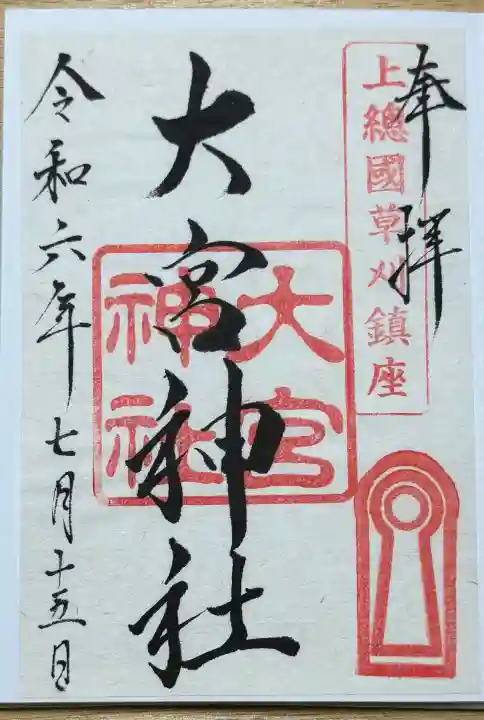 奉拝
上總國草刈鎮座
大宮神社
大宮神社
令和六年七月十五日